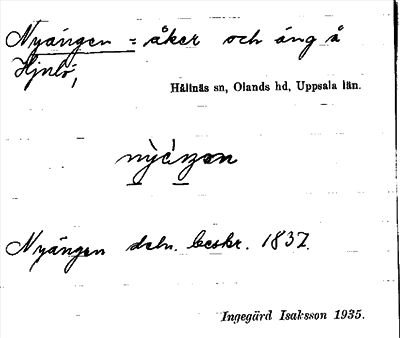 Nyängen = åker och äng å
Hjulö,
Hållnäs sn, Olands hd, Uppsala län.
Nyängen deln. beskr. 1837.
Ingegärd Isaksson 1935.